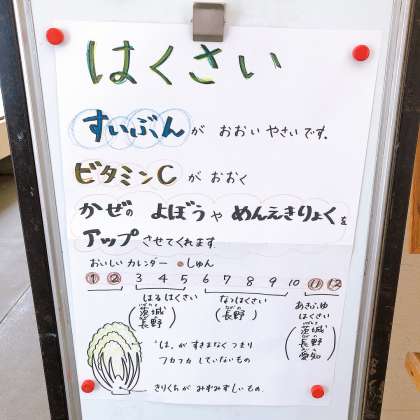 はくさい
すいぶんが おおい やさいです。
ビタミンCが おおく
かぜの よぼうや めんえきりょくを
アップさせてくれます
おいしいカレンダー ●しゅん
① ② 3 4 5 6 7 8 9 10 ⑪ ⑫
はるはくさい
(茨城 長野)
なつはくさい
(長野)
あきふゆ
はくさい
(茨城 長野 愛知)
・は。がすきまなくつまり
フカフカしていないもの
きりくちがみずみずしいもの。